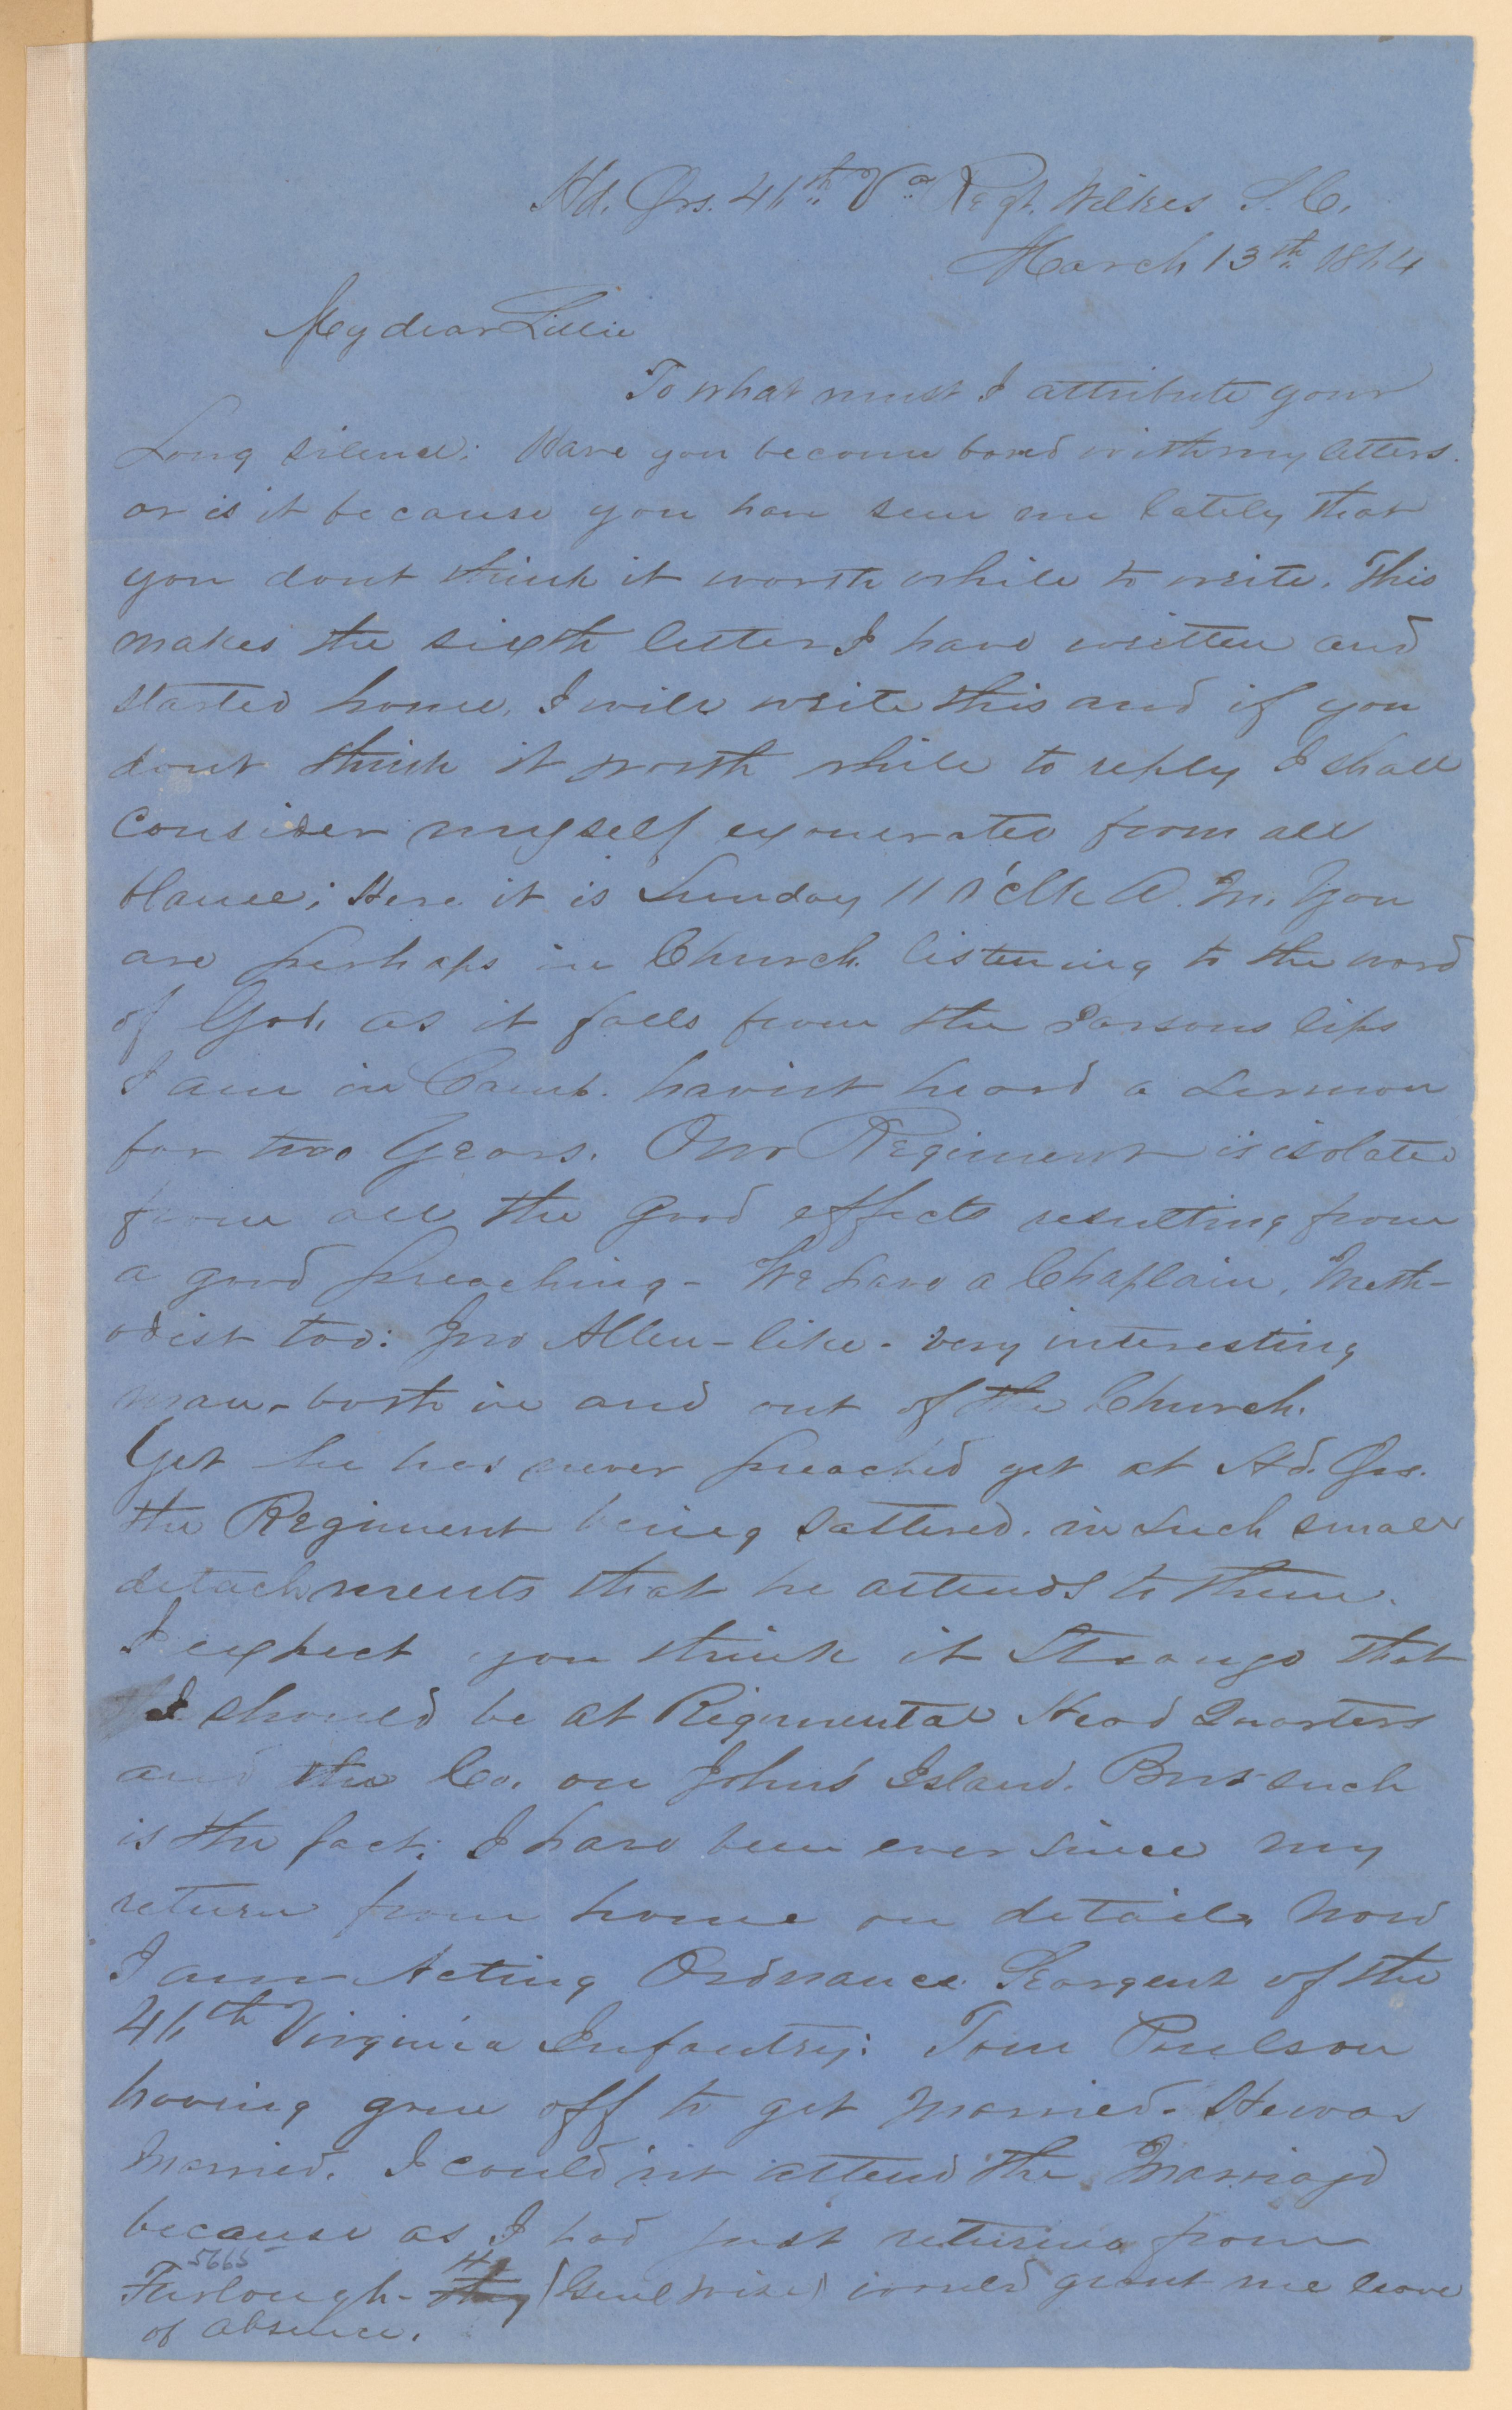 Hd. Qrs. 46th Va Regt. Wilkes S. C.
March 13th 1864
My dear Lillie
To what must I attribute your
Long silence: Have you become bored with my letters.
or is it because you have seen me lately that
you dont think it worth while to write. This
makes the sixth letter I have written and
started home. I will write this and if you
dont think it worth while to reply I shall
consider myself exonerated from all
blame; Here it is Sunday 11 o'clk A. M. You
are perhaps in Church listening to the word
of God, as it falls from the Parsons lips
I am in Camp. havint heard a sermon
for two Years. Our Regiment is isolated
from all the good effects resulting from
a good preaching - We have a Chaplain, Meth-
odist too: Jno Allen-like - very interesting
man - both in and out of the Church.
Yet he has never preached yet at Hd. Qrs.
the Regiment being sattered. in such small
detachments that he attends to them.
I expect you think it Strange that
I should be at Regimental Head Quarters
and the Co. on John's Island. But such
is the fact; I have been ever since my
return from home on detail. Now
I am Acting Ordnance Seargent of the
46th Virginia Infantry: Tom Poulson
having gone off to get married. He was
married. I could'nt attend the Marriage
because as I had just returned from
5665
Furlough - they He (Genl Wise) would grant me leave
of absence.